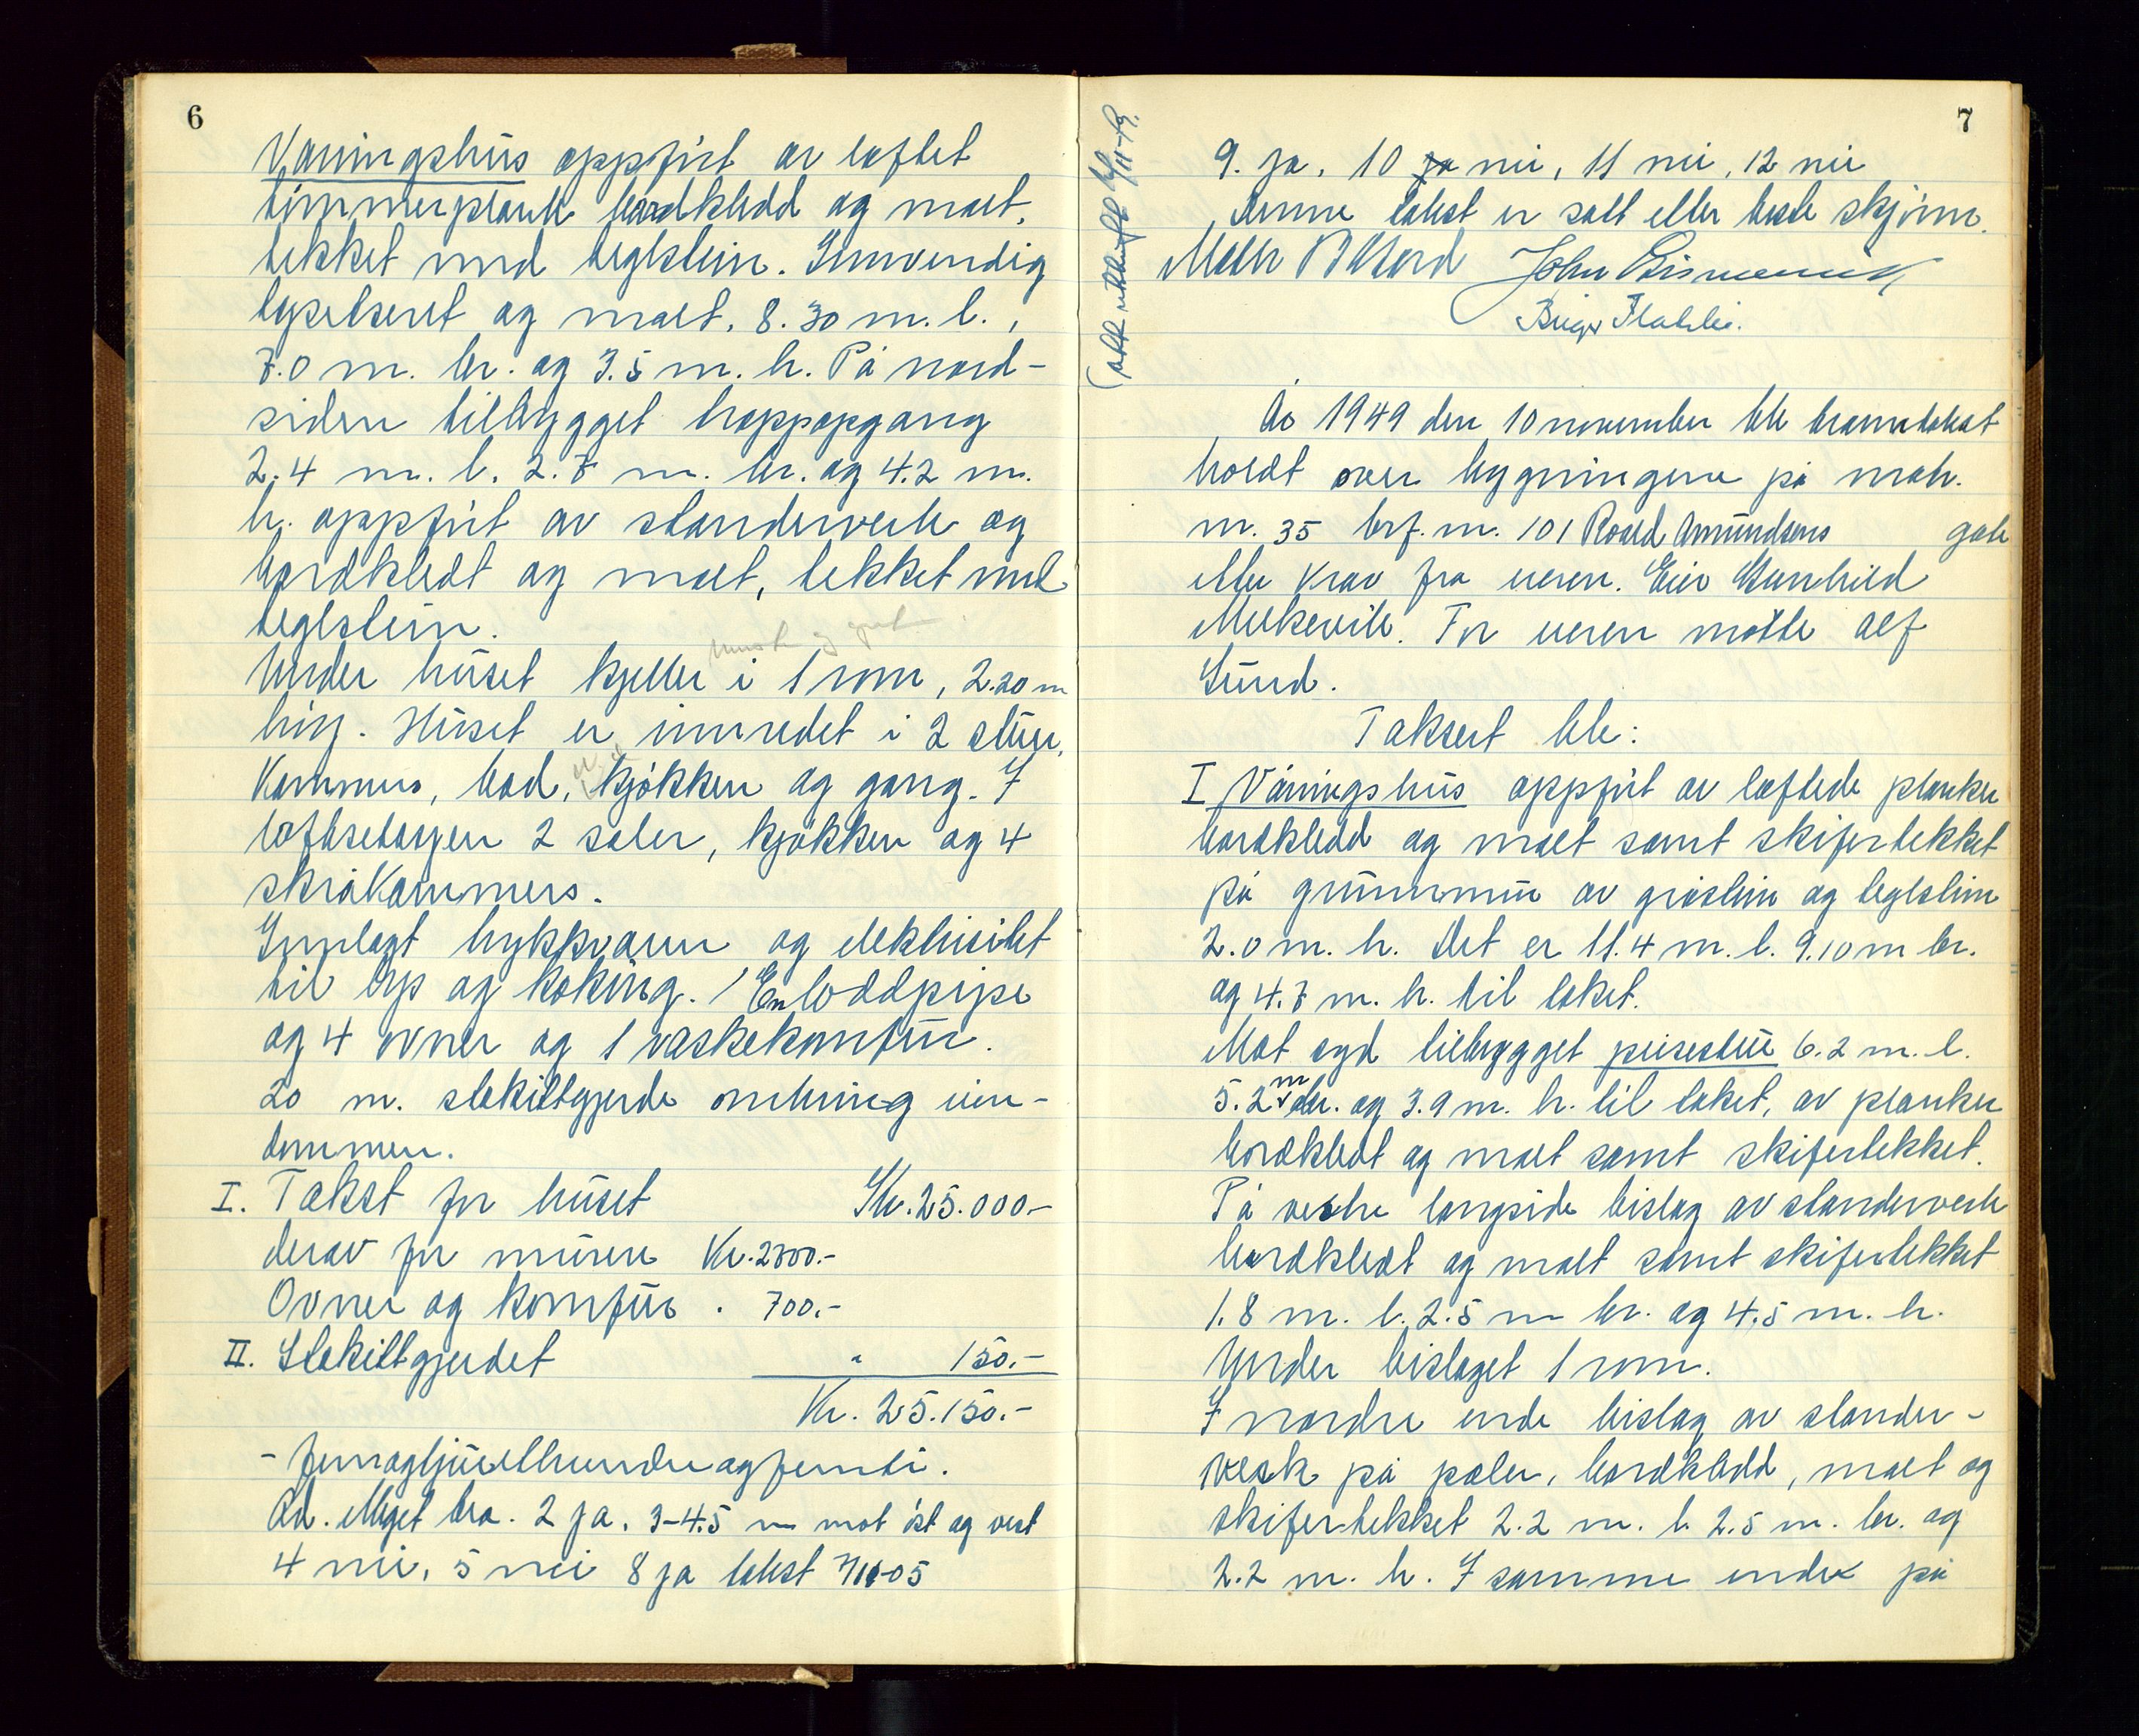 6
Våningshus oppført av laftet
timmerplank bordkledd og malt,
tekket med teglstein. Innvendig
lypsetseret og malt, 8.30 m. l.,
7.0 m. br. og 3.5 m. h. På nord-
siden tilbygget trappopgang
2.4 m. l. 2.7 m. br. og 4.2 m.
h. oppført av standerverk og
bordkledt og malt, tekket med
teglstein.
Under huset kjeller i 1 rom, 2.20 m
høy. Huset er innredet i 2 stuer,
Kammers, bad, kjøkken og gang. I
loftsetasjen 2 saler, kjøkken og 4
skråkammers.
Innlagt trykkvann og elektrisitet
til lys og koking. 1 En loddpipe
og 4 ovner og 1 vaskekomfur.
20 m. stakittgjerde omkring eien-
dommen.
I. Takst for huset Kr. 25.000.-
derav for murene Kr. 2700.-
Ovner og komfur . 700.-
II. Stakittgjerdet " 150.-
Kr. 25.150.-
- femogtjueethundreogfemti.
Ad. Meget bra. 2 ja. 3-4.5 m mot øst og vest
4 nei, 5 nei 8 ja takst 7/11-05
7
9. ja, 10 ja nei, 11 nei, 12 nei
Denne takst er satt etter beste skjønn.
John
År 1949 den 10 november ble branntakst
holdt over bygningene på matr.
nr. 35 brf. nr. 101 Roald Amundsens gate
etter krav fra eieren. Eier Gunhild
Melkevik. For eieren møtte Alf
Lund.
Taksert ble:
I Våningshus oppført av laftede planker
bordkledd og malt samt skifertekket
på grunnmur av gråstein og teglstein
2.0 m. h. Det er 11.4 m. l. 9.10 m br.
og 4.7 m. h. til taket.
Mot syd tilbygget peisestue 6.2 m. l.
5.2 m br. og 3.9 m. h. til taket, av planker
bordkledt og malt samt skifertekket.
På vestre langside bislag av standerverk
bordkledt og malt samt skifertekket
1.8 m. l. 2.5 m br. og 4.5 m. h.
Under bislaget 1 rom.
I nordre ende bislag av stander-
verk på pæler, bordkledd, malt og
skifertekket 2.2 m. l. 2.5 m. br. og
2.2 m. h. I samme ende på